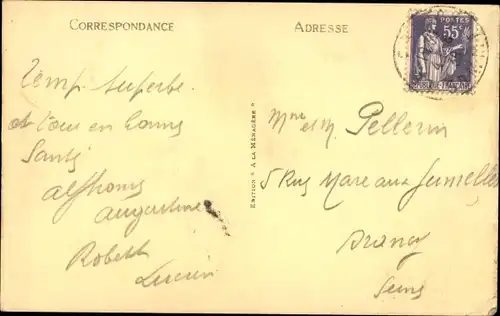 CORRESPONDANCE
ADRESSE
POSTES
55c
RÉPUBLIQUE FRANÇAISE
Temps superbe
et tous en bonne
Santé
Alphonse
Augustine
Robert
Lucien
EDITION "A LA MÉNAGÈRE"
Mme et M. Pellerin
5 Rue Mare aux
Drancy
Seine